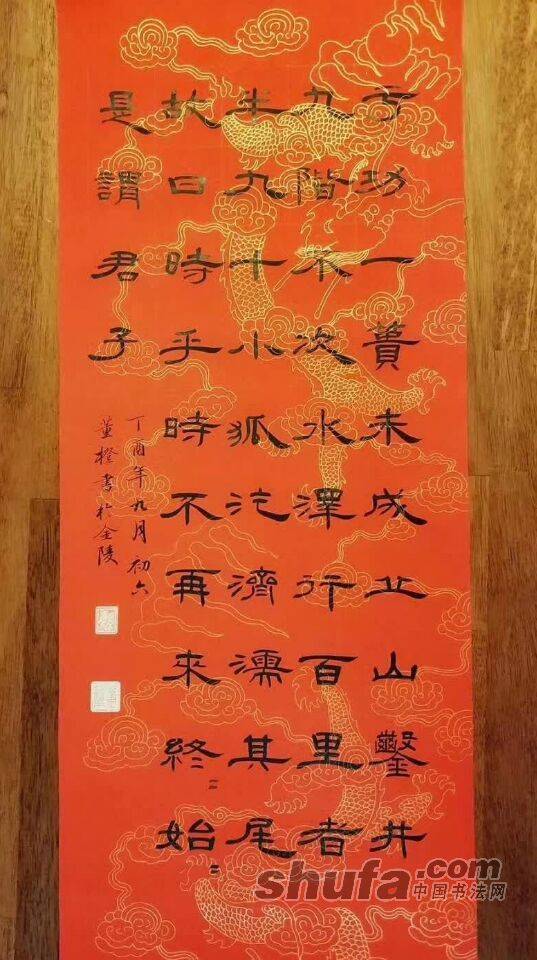 亏功一蕢未成丘山鑿井
九階不次水澤行百里者
半九十小狐汔濟濡其尾
故曰時乎時不再來終〻始〻
是謂君子
丁酉年九月初六
董橙書於金陵
shufa.com
中国书法网